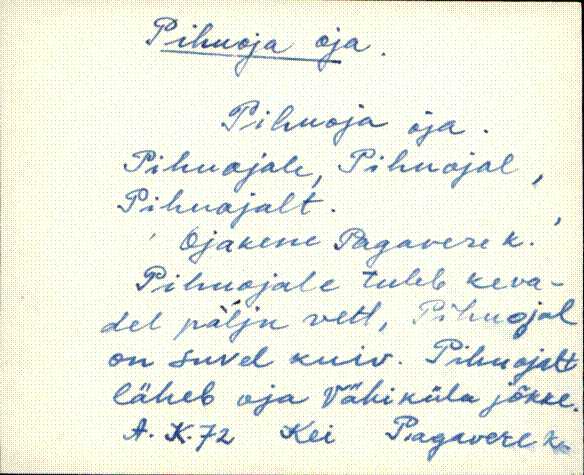 Pihuoja oja.
Pihuoja oja.
Pihuojale, Pihuojal,
Pihuojalt.
Ojakene Pagavere k.
Pihuojale tuleb keva-
del palju vett, Pihuojal
on suvel kuiv. Pihuojalt
läheb oja Vähiküla jõkke.
A. K. 72 Kei Pagavere k.